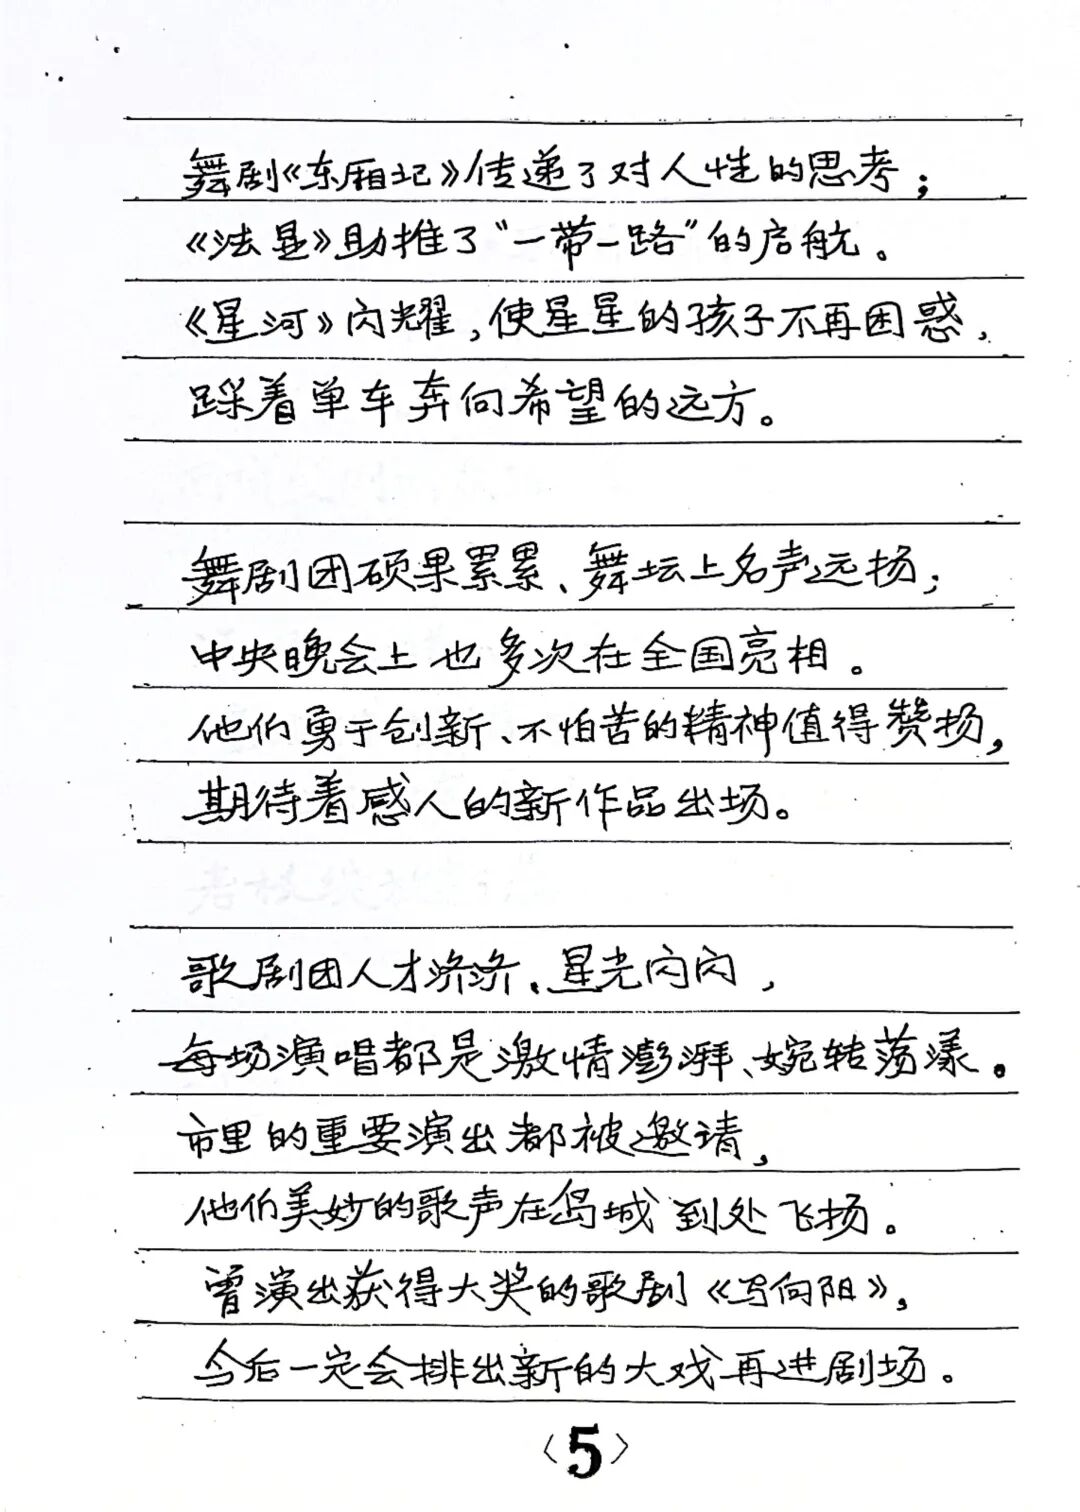 舞剧《东厢记》传递了对人性的思考；
《法显》助推了“一带一路”的启航。
《星河》闪耀，使星星的孩子不再困惑，
踩着单车奔向希望的远方。
舞剧团硕果累累、舞坛上名声远扬；
中央晚会上也多次在全国亮相。
他们勇于创新、不怕苦的精神值得赞扬，
期待着感人的新作品出场。
歌剧团人才济济、星光闪闪，
每场演唱都是激情澎湃、婉转荡漾。
市里的重要演出都被邀请，
他们美妙的歌声在岛城到处飞扬。
曾演出获得大奖的歌剧《马向阳》，
今后一定会排出新的大戏再进剧场。
〈5〉